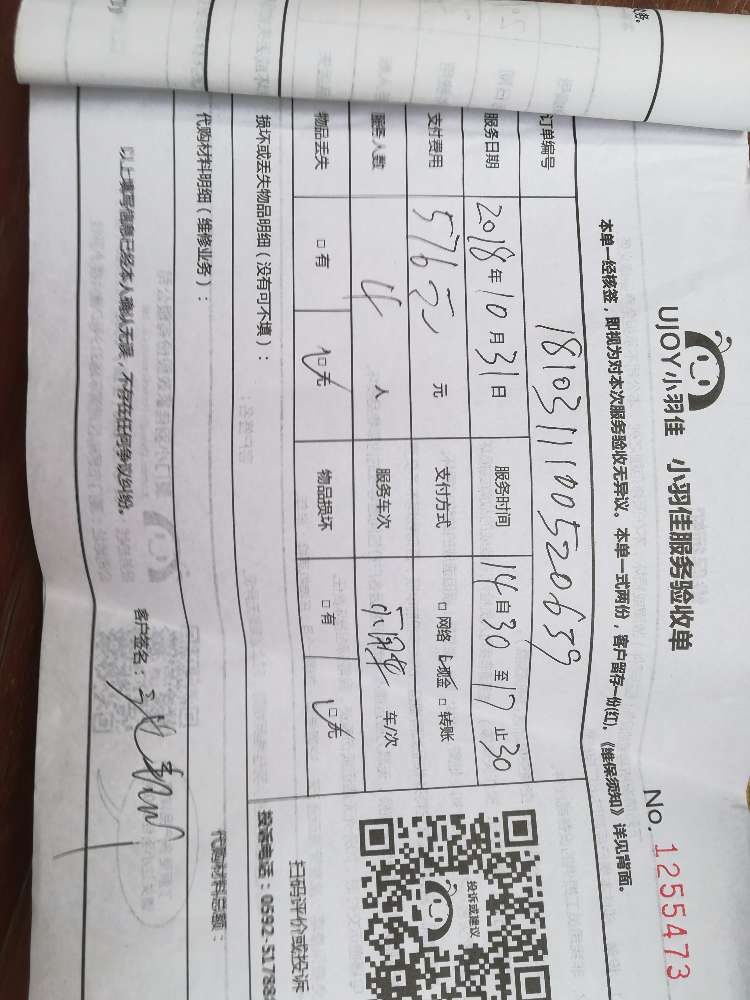 UJOY小羽佳 小羽佳服务验收单
No. 1255473
本单一经核签，即视为对本次服务验收无异议。本单一式两份，客户留存一份(红)，《维保须知》详见背面。
订单编号 1810311100520639
服务日期 2018年10月31日 服务时间 14自30至17止30
支付费用 576元 元 支付方式 □ 网络 □ 现金 □ 转账
服务人数 4 人 服务车次 车/次
物品丢失 □ 有 □ 无 物品损坏 □ 有 □ 无
损坏或丢失物品明细（没有可不填）：
代购材料明细（维修业务）： 代购材料总额：
以上填写信息已经本人确认无误，不存在任何争议纠纷。
客户签名：
投诉或建议
扫码评价或投诉
投诉电话：0592-51788